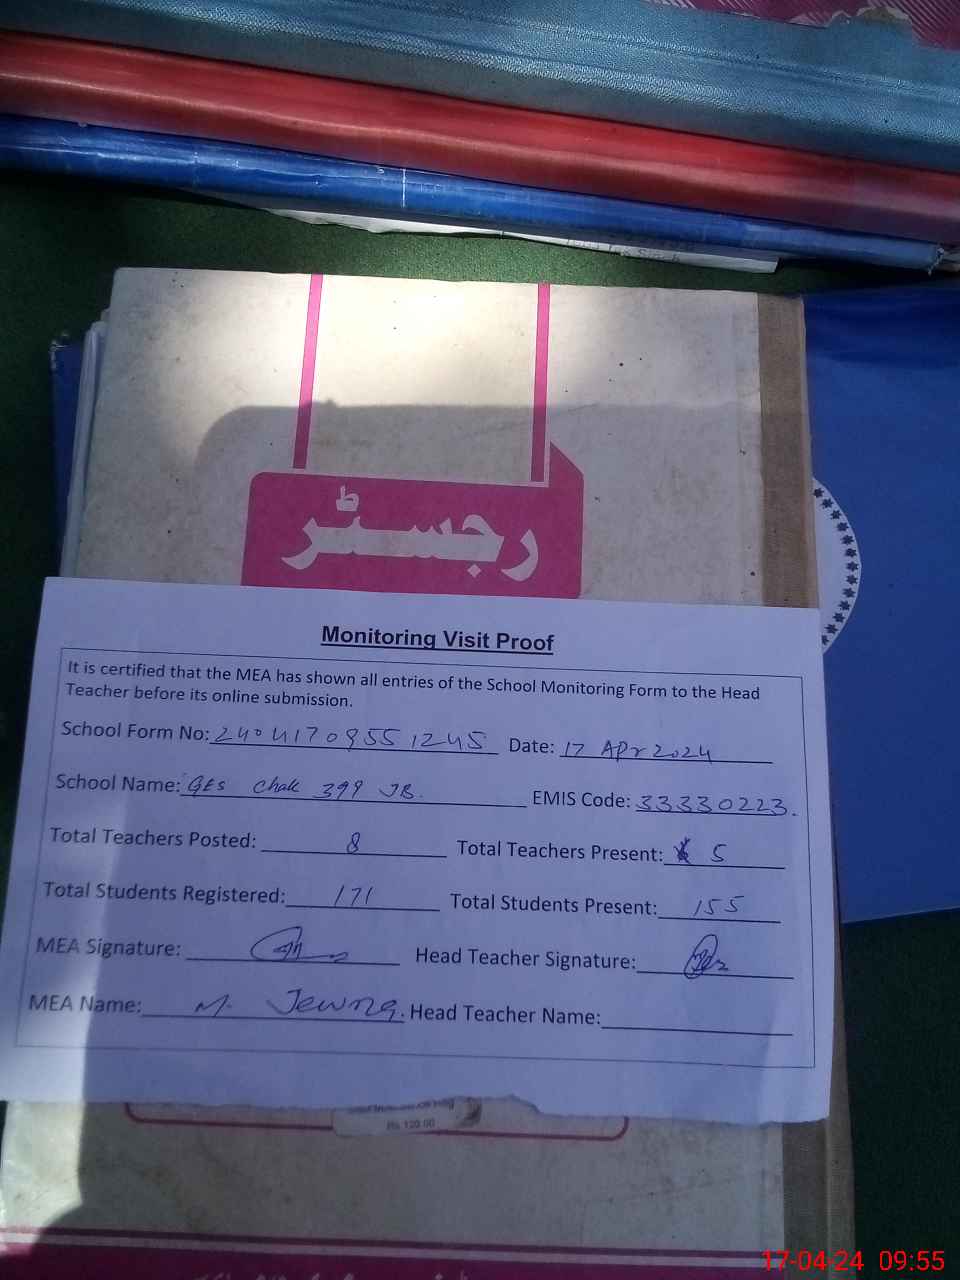 رجسٹر
Monitoring Visit Proof
It is certified that the MEA has shown all entries of the School Monitoring Form to the Head
Teacher before its online submission.
School Form No: 24041709551245 Date: 17 Apr 2024
School Name: GES Chak 399 JB. EMIS Code: 33330223.
Total Teachers Posted: 8 Total Teachers Present: 5
Total Students Registered: 171 Total Students Present: 155
MEA Signature: Head Teacher Signature:
MEA Name: M. Head Teacher Name:
Rs. 120.00
17-04-24 09:55